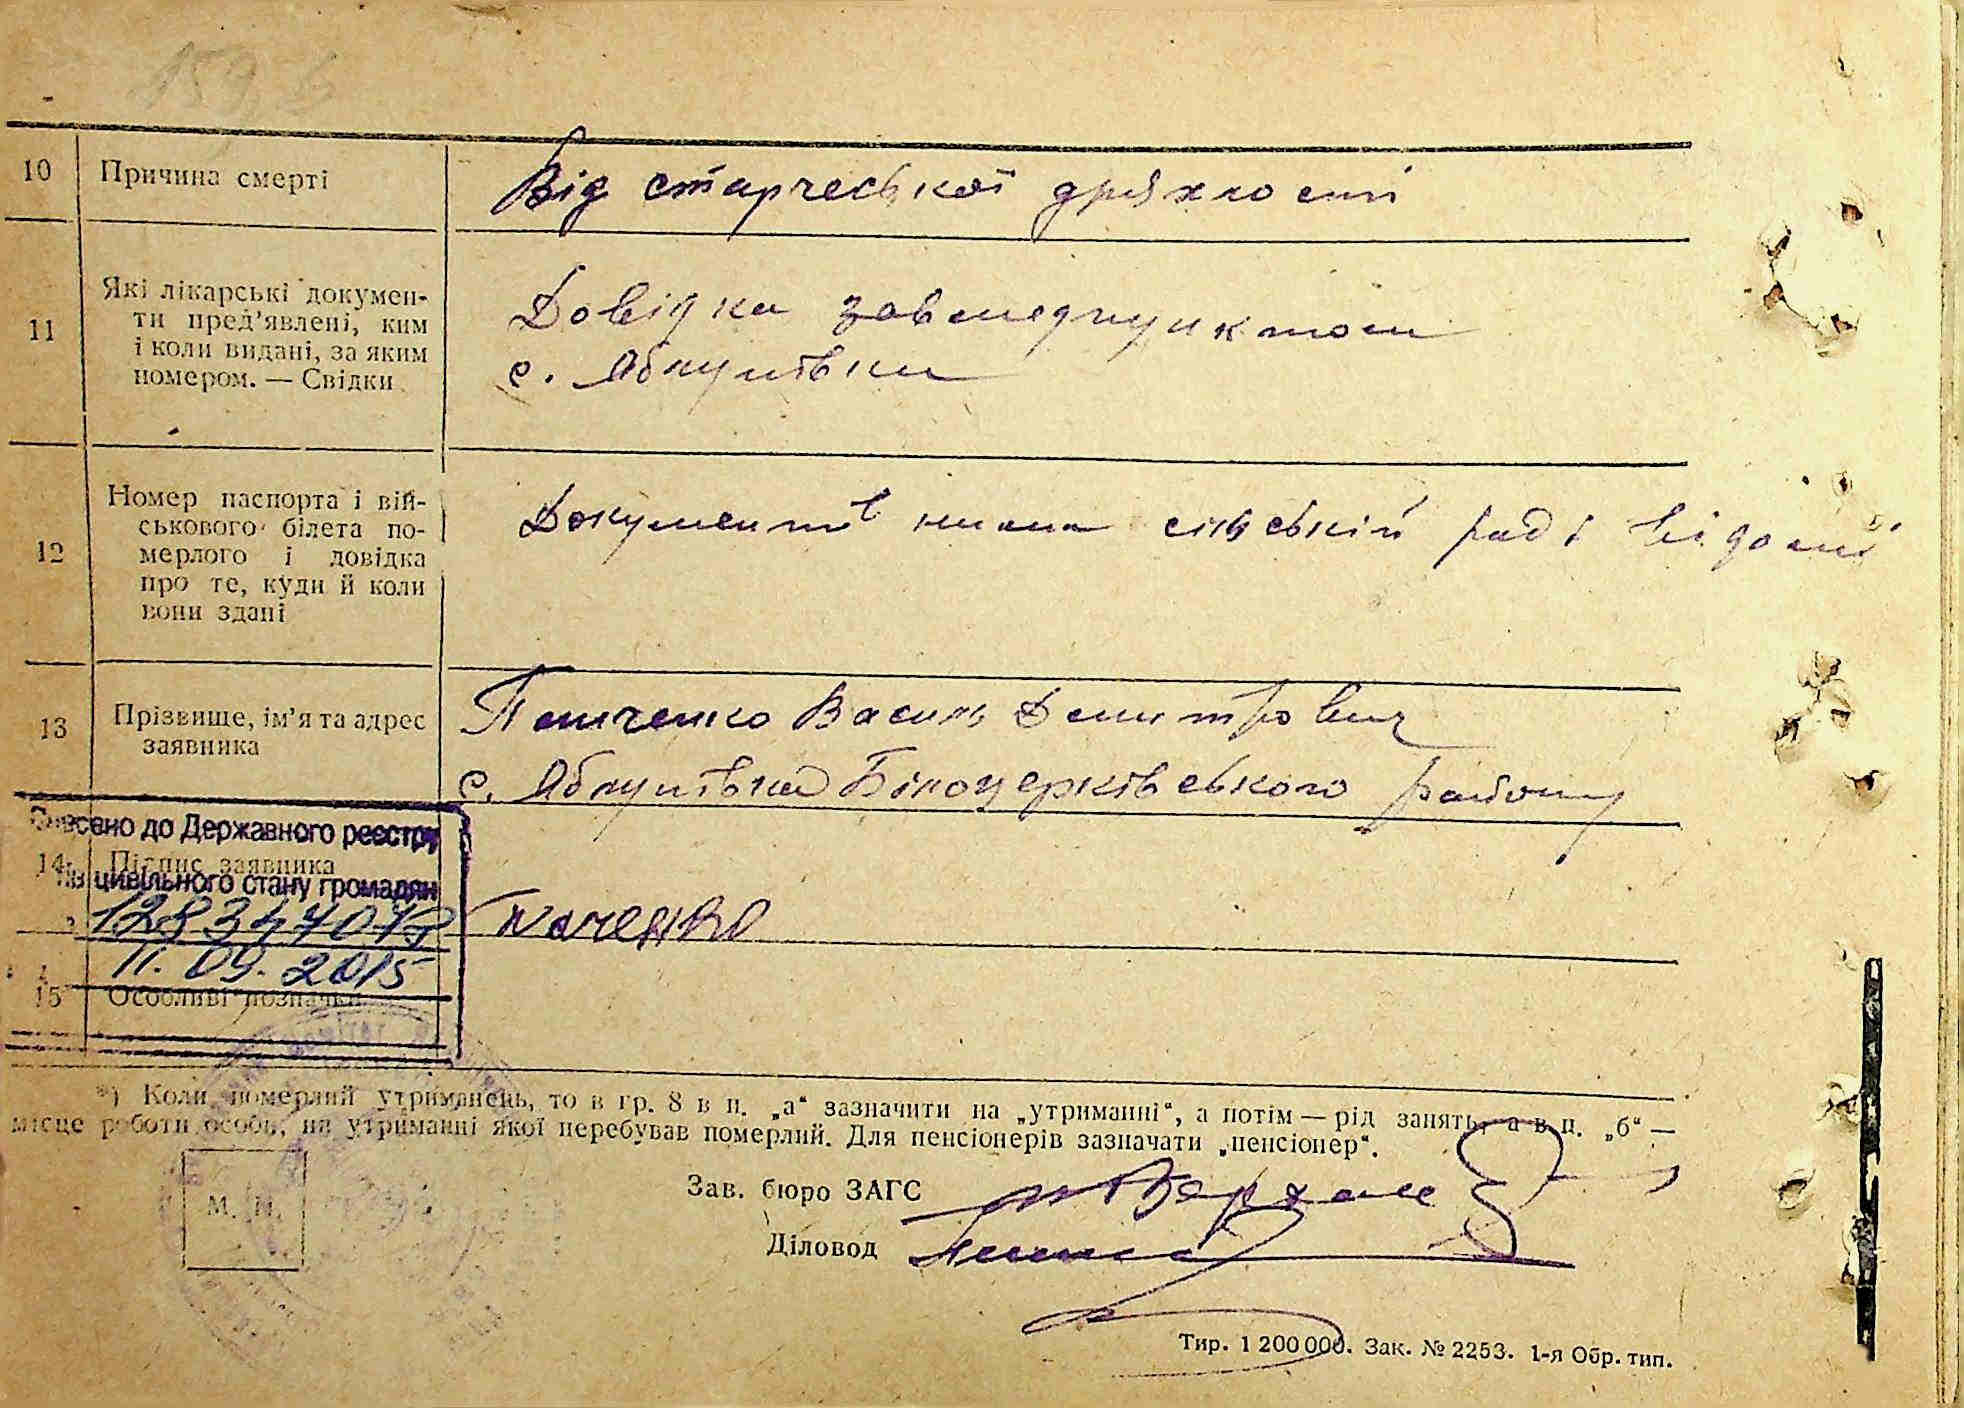 10 Причина смерті
Від старческої дряхлості
11 Які лікарські докумен-
ти пред'явлені, ким
і коли видані, за яким
номером. — Свідки
Довідка завмедпунктом
с. Яблунівки
12 Номер паспорта і вій-
ськового білета по-
мерлого і довідка
про те, куди й коли
вони здані
Документів нима сільській раді відомий
13 Прізвище, ім'я та адрес
заявника
Василь Дмитрович
с. Яблунівка Білоцерківського району
Внесено до Державного реєстру
14 Підпис заявника
цивільного стану громадян
11.09.2015
15 Особливі позначки
*) Коли померлий утриманець, то в гр. 8 в п. „а“ зазначити на „утриманні“, а потім — рід занять, а в п. „б“ —
місце роботи особи, на утриманні якої перебував померлий. Для пенсіонерів зазначати „пенсіонер“.
М. П.
Зав. бюро ЗАГС
Діловод
Тир. 1 200 000. Зак. № 2253. 1-я Обр. тип.